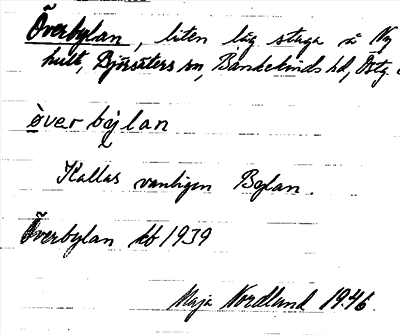 Överbylan, liten låg stuga å Ny
hult, Björsäters sn, Bankekinds hd, Östg
òver bylan
Kallas vanligen Bylan.
Överbylan kb 1939
Maja Nordlund 1946.